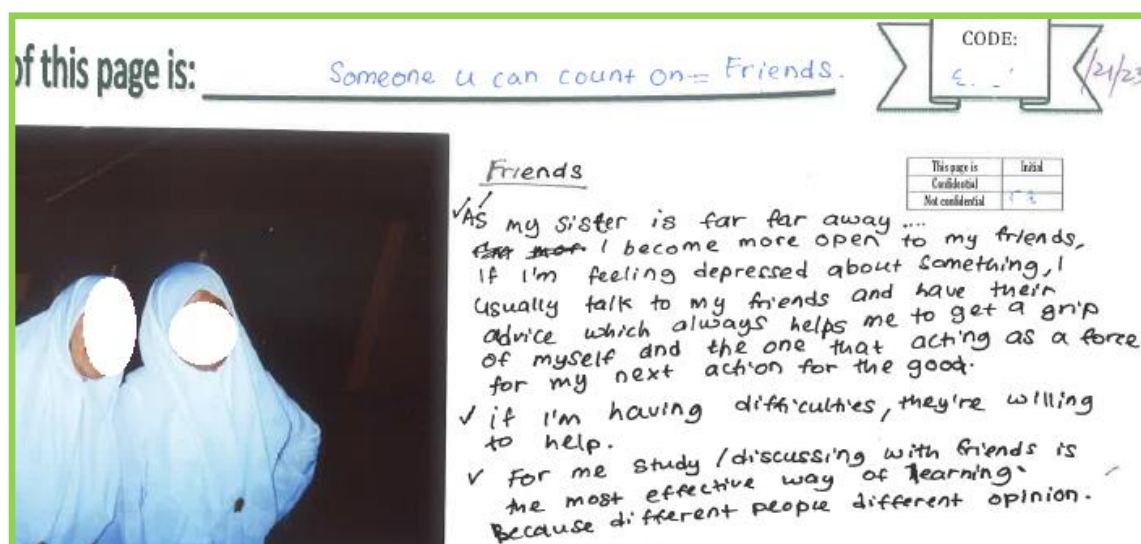 of this page is: Someone u can count on = Friends.
CODE:
/21/23
This page is Initial
Confidential
Not confidential
Friends
✓ As my sister is far far away....
I become more open to my friends,
If I'm feeling depressed about something, I
usually talk to my friends and have their
advice which always helps me to get a grip
of myself and the one that acting as a force
for my next action for the good.
✓ if I'm having difficulties, they're willing
to help.
✓ For me study / discussing with friends is
the most effective way of learning.
Because different people different opinion.